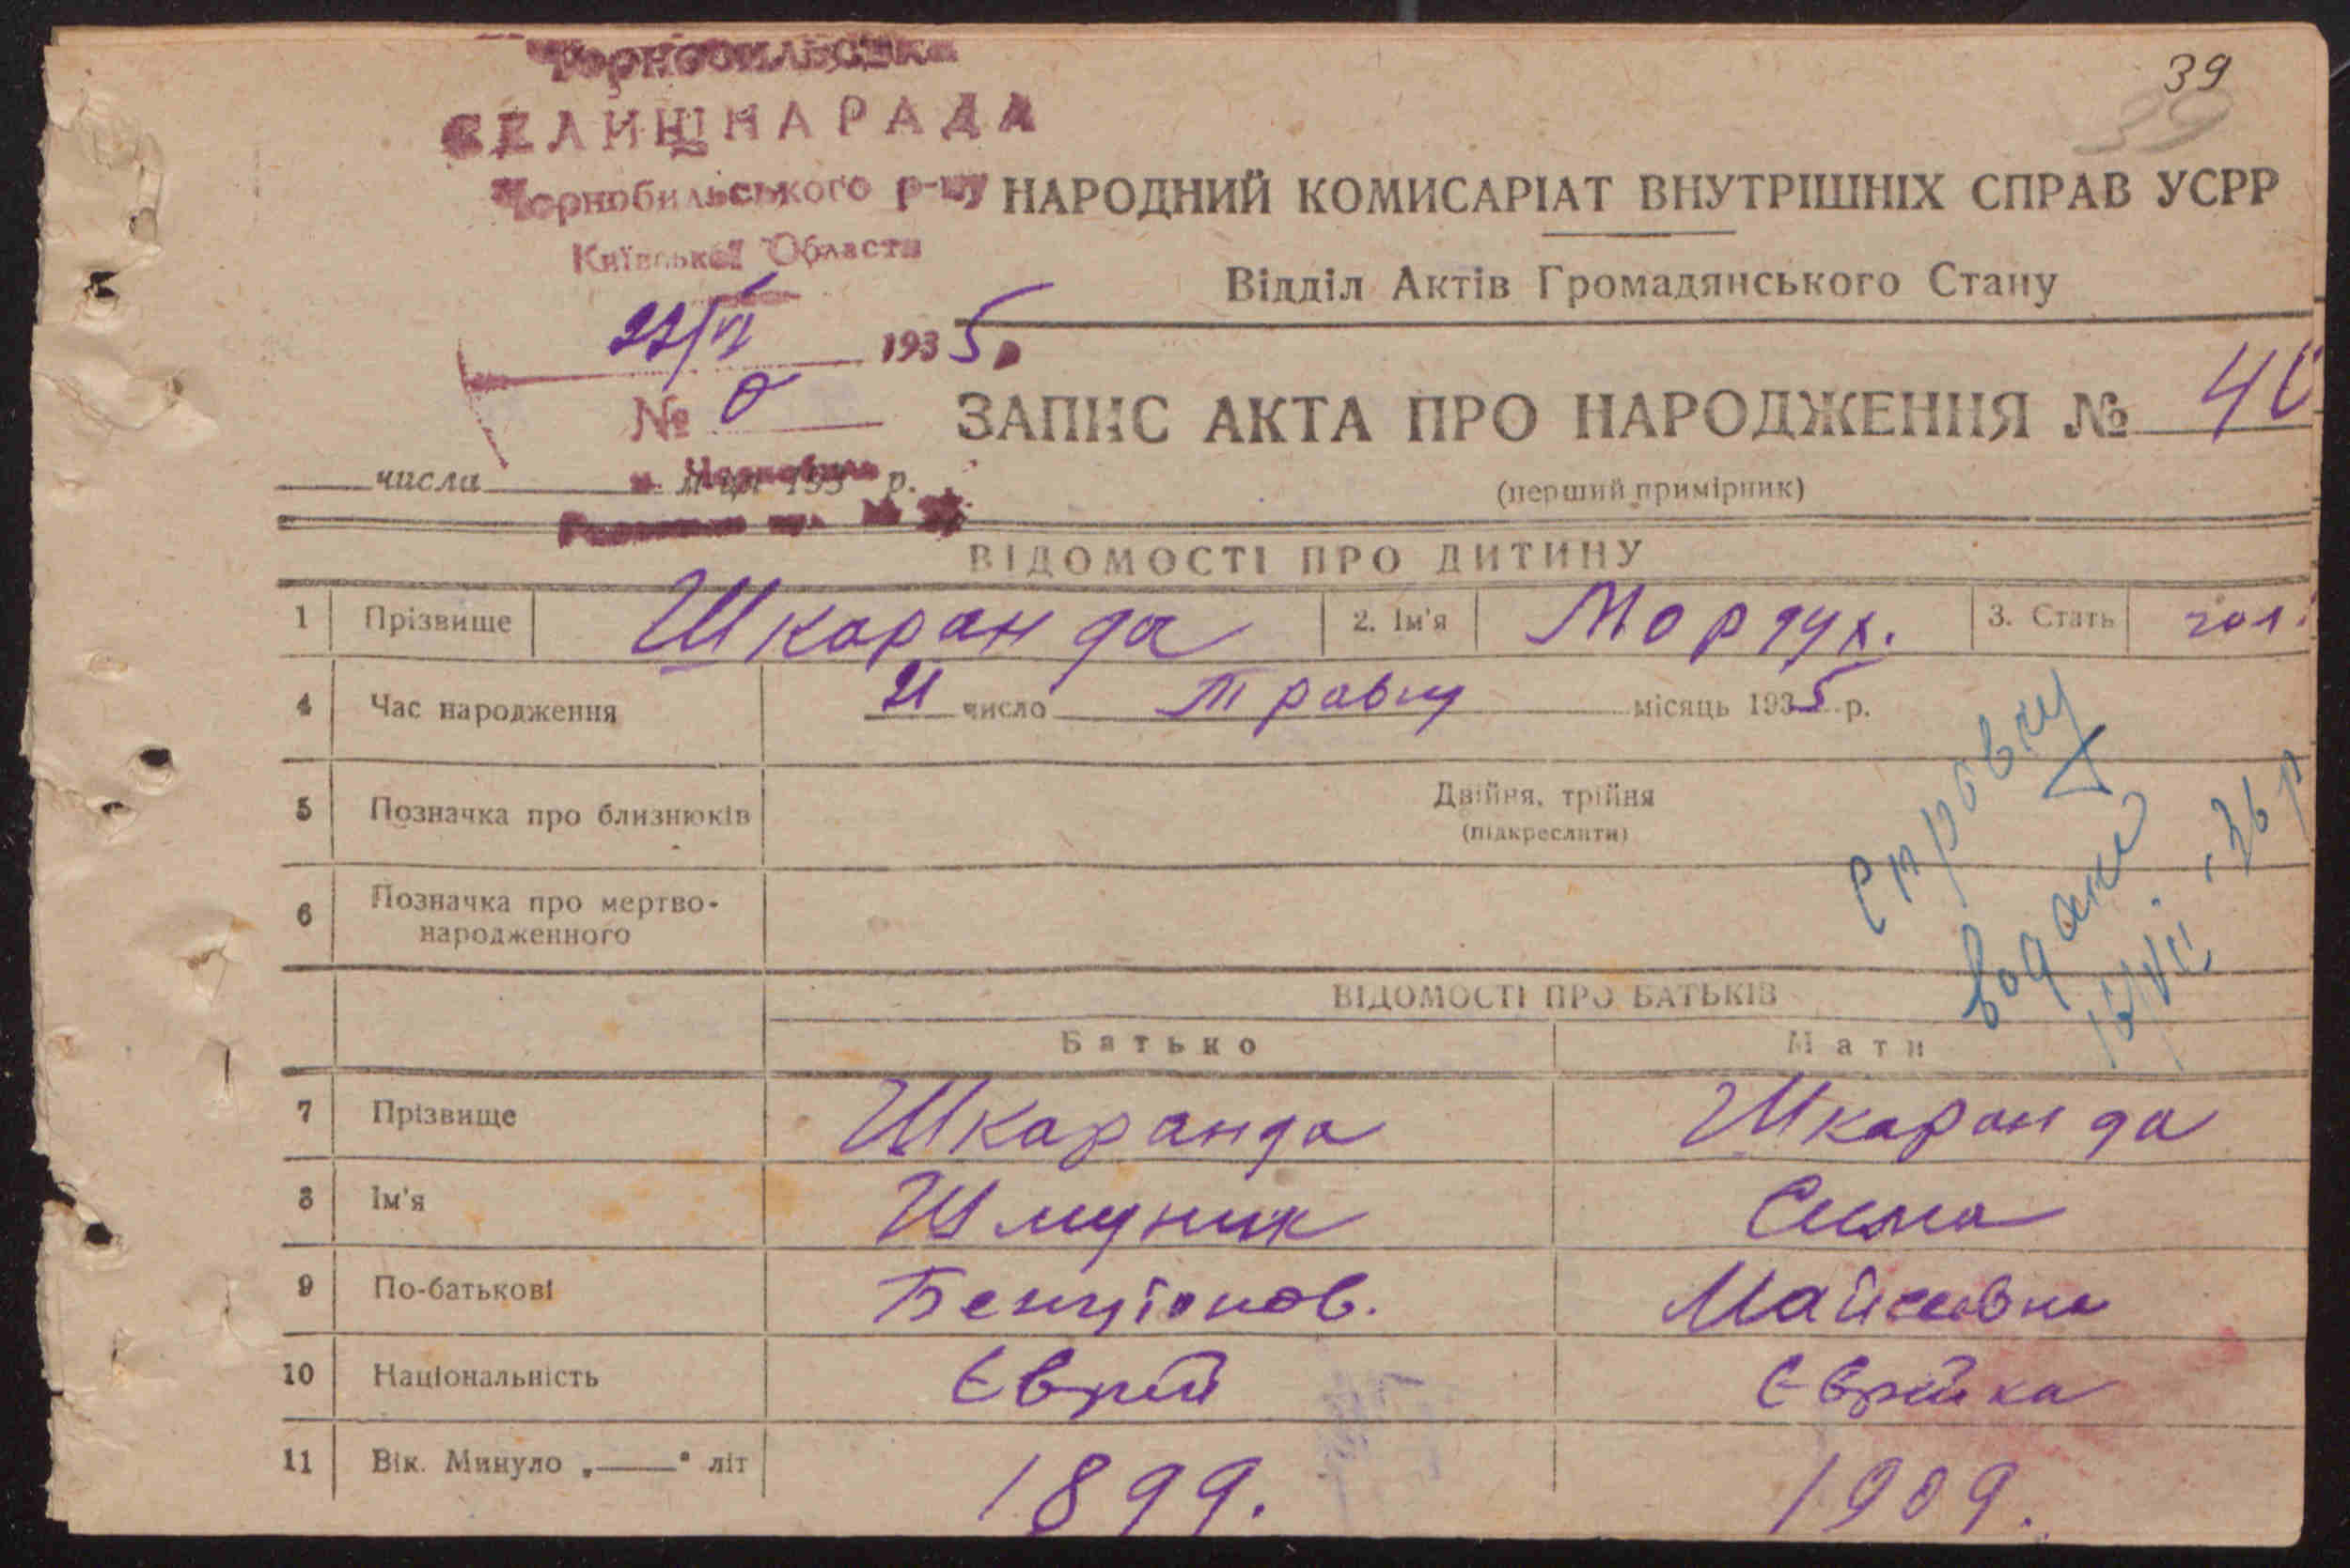 39
39
Чорнобильська
СЕЛИЩНА РАДА
Чорнобильського р-ну
Київської Области
НАРОДНИЙ КОМИСАРІАТ ВНУТРІШНІХ СПРАВ УСРР
Відділ Актів Громадянського Стану
1935
№
ЗАПИС АКТА ПРО НАРОДЖЕННЯ №
числа м-ця 193 р.
м. Чорнобиль
(перший примірник)
ВІДОМОСТІ ПРО ДИТИНУ
1 Прізвище Шкаранда 2. Ім'я Мордух. 3. Стать чол.
4 Час народження 21 число травня місяць 1935 р.
5 Позначка про близнюків Двійня, трійня
(підкреслити)
6 Позначка про мертво-
народженного
справку
видано
36 р
ВІДОМОСТІ ПРО БАТЬКІВ
Батько Мати
7 Прізвище Шкаранда Шкаранда
8 Ім'я Шмуник Сима
9 По-батькові Бенціонов. Мойсеевна
10 Національність Єврей Єврейка
11 Вік. Минуло „ “ літ 1899. 1909.